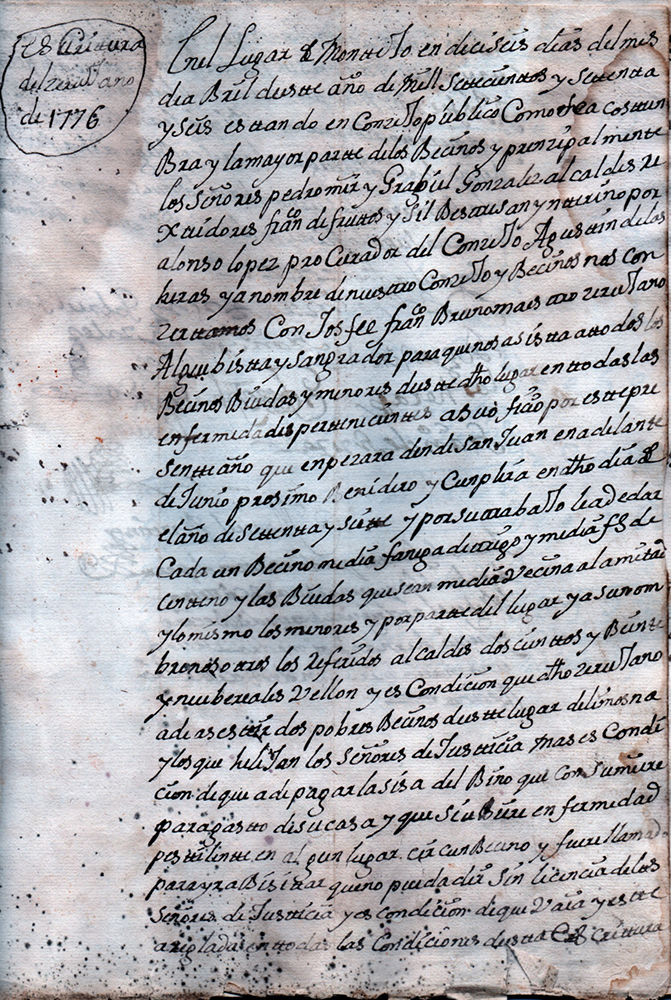 esCritura
del zerujano
de 1776
Enel Lugar de Montejo en dieciseis dias del mes
dea Bril deste año de Mill Setecientos y Setenta
y Seis estando en Conzejo publico Como hea costun
Bra y la mayor partte delos Becinos y prenzipalmente
los Señores pedro mir y Grabiel Gonzalez alcaldes Re
xidores fran de frutos y Gil Bes y nterino por
alonso lopez proCurador del Conzejo Agustin delas
heras y a nombre de nuestro Conzejo y Becinos nos con
zertamos Con Josfee fran Bruno maestro zerujano
Algibista y Sangrador para que nos asista a todos los
Becinos Biudas y menores deste dho lugar en todas las
enfermedades pertenecientes a su ofizio por este pre
sente año que enpezara dendi San Juan en adelante
de Junio prosimo Benidero y Cunplira en dho dia de
el año de Setenta y Siete y por su trabajo se a de dar
Cada un Becino media fanega de trigo y media fg de
centeno y las Biudas que sean media Vecina ala mitad
y lo mismo los menores y por parte del lugar y a su nom
bre nosotros los Referidos alcaldes doscientos y Beinte
y nuebe reales Vellon y es Condicion que dho zerujano
a de asestir dos pobres Becinos deste lugar de limosna
y los que helijan los Señores de Justicia mas es Condi
cion de que a de pagar la sisa del Bino que Consumiere
para gasto de su casa y que si ubiere enfermedad
pestilente en algun lugar circunBecino y fuere llamado
para yr a Bisitar que no pueda dir Sin licencia delos
Señores de Justicia y es condicion de que Vaia y este
areglada en todas las Condiciones desta Escritura